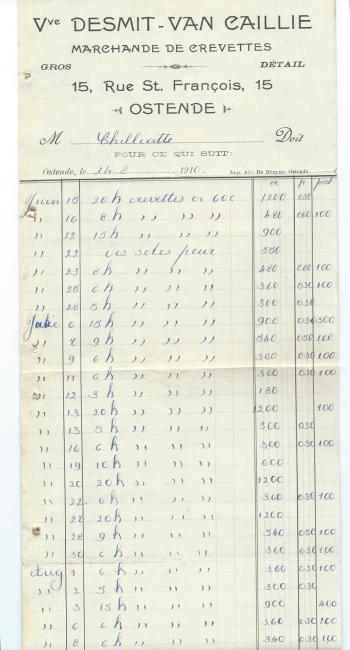 Vve DESMIT-VAN CAILLIE
MARCHANDE DE CREVETTES
GROS DÉTAIL
15, Rue St. François, 15
OSTENDE
M Doit
POUR CE QUI SUIT:
Ostende, le 1910.
Juin 15 20 h crevettes a 60c 1200 030
,, 16 8 h ,, ,, ,, 480 060 100
,, 17 15 h ,, ,, ,, 900
,, 22 des soles pour
,, 23 8 h ,, ,, ,, 480 060 100
,, 25 6 h ,, ,, ,, 360 030 100
,, 28 5 h ,, ,, ,, 300 030
6 15 h ,, ,, ,, 900 030 300
,, 8 9 h ,, ,, ,, 540 030 100
,, 9 6 h ,, ,, ,, 360 030 100
,, 11 6 h ,, ,, ,, 360 030 100
,, 12 3 h ,, ,, ,, 180
,, 13 20 h ,, ,, ,, 1200 100
,, 13 5 h ,, ,, ,, 300 030
,, 16 6 h ,, ,, ,, 360 030 100
,, 19 10 h ,, ,, ,, 600
,, 20 20 h ,, ,, ,, 1200
,, 22 6 h ,, ,, ,, 360 030 100
,, 20 h ,, ,, ,, 1200
,, 28 9 h ,, ,, ,, 540 030 100
,, 30 6 h ,, ,, ,, 360 030 100
Aug 1 6 h ,, ,, ,, 360 030 100
,, 2 5 h ,, ,, ,, 300 030
,, 3 15 h ,, ,, ,, 900 400
,, 6 6 h ,, ,, ,, 360 030 100
,, 8 6 h ,, ,, ,, 360 030 100